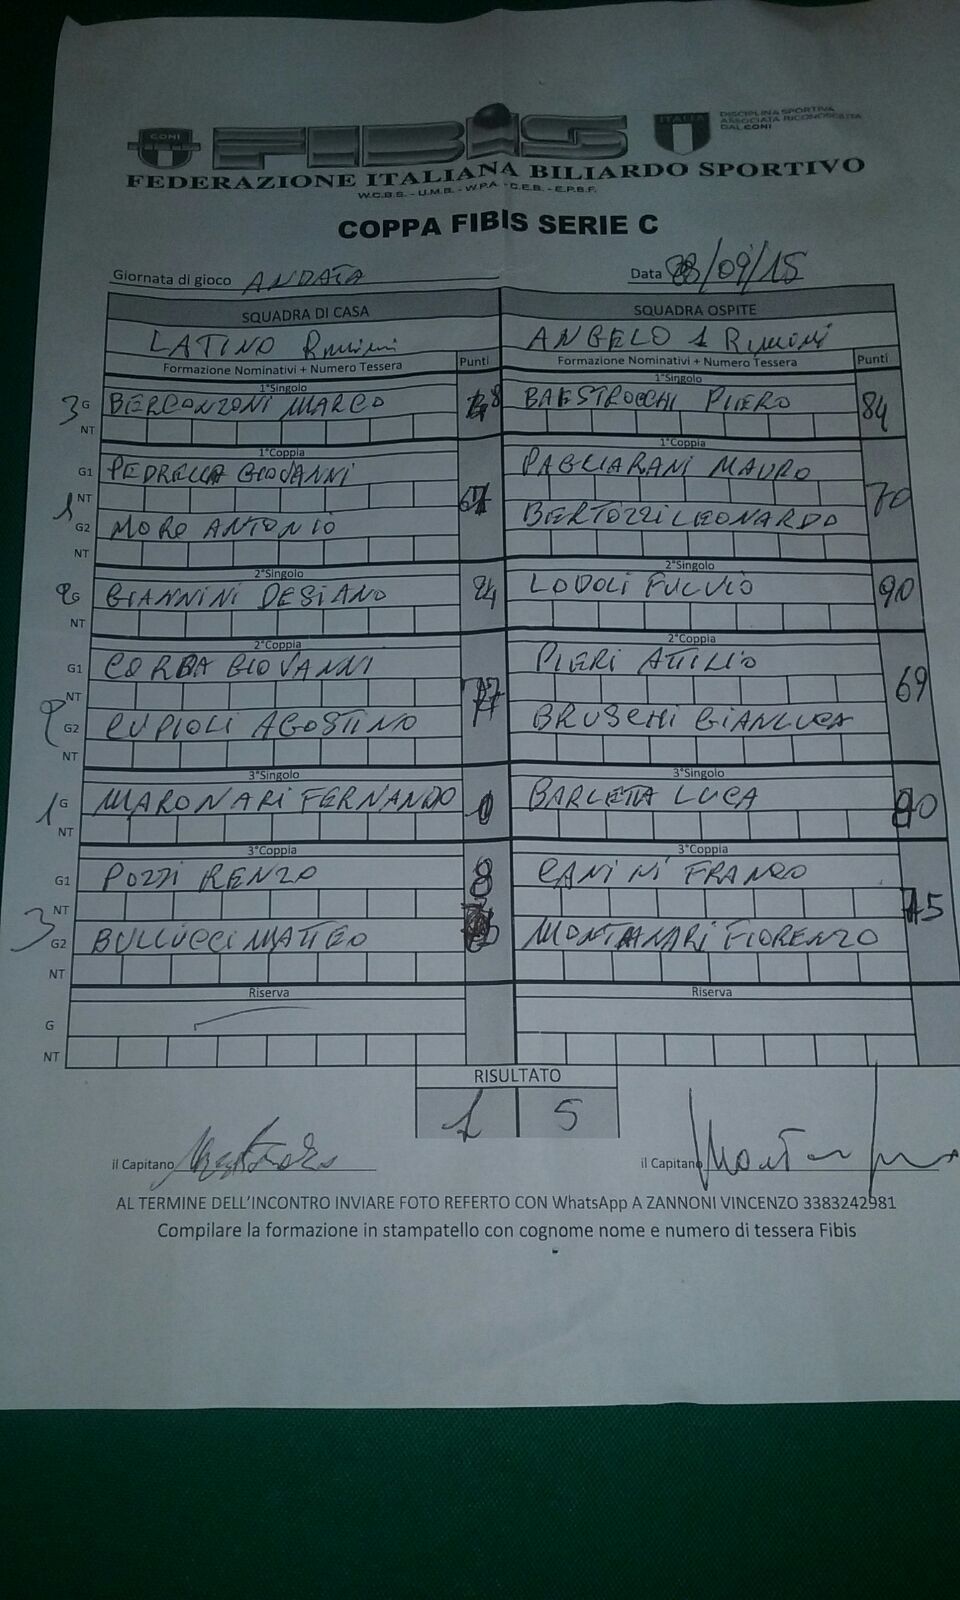 CONI
FIBIS
ITALIA
DISCIPLINA SPORTIVA
ASSOCIATA RICONOSCIUTA
DAL CONI
FEDERAZIONE ITALIANA BILIARDO SPORTIVO
W.C.B.S. - U.M.B. - W.P.A. - C.E.B. - E.P.B.F.
COPPA FIBIS SERIE C
Giornata di gioco ANDATA Data /09/15
SQUADRA DI CASA SQUADRA OSPITE
LATINO Rimini ANGELO 1 RIMINI
Formazione Nominativi + Numero Tessera Punti Formazione Nominativi + Numero Tessera Punti
1°Singolo 1°Singolo
3 G BERCONZONI MARCO BAESTROCCHI PIERO 84
NT
1°Coppia 1°Coppia
G1 PEDRELLA GIOVANNI PAGLIARANI MAURO
1 NT 70
G2 MORO ANTONIO BERTOZZI LEONARDO
NT
2°Singolo 2°Singolo
2 G GIANNINI DESIANO 24 LODOLI FULVIO 90
NT
2°Coppia 2°Coppia
G1 CORBA GIOVANNI PIERI ATTILIO
2 NT 77 69
G2 CUPIOLI AGOSTINO BRUSCHI GIANLUCA
NT
3°Singolo 3°Singolo
1 G MARONARI FERNANDO 0 BARLETTA LUCA 90
NT
3°Coppia 3°Coppia
G1 POZZI RENZO 8 CANINI FRANCO
3 NT 75
G2 BULLUCCI MATTEO MONTANARI FIORENZO
NT
Riserva Riserva
G
NT
RISULTATO
1 5
il Capitano il Capitano
AL TERMINE DELL'INCONTRO INVIARE FOTO REFERTO CON WhatsApp A ZANNONI VINCENZO 3383242981
Compilare la formazione in stampatello con cognome nome e numero di tessera Fibis